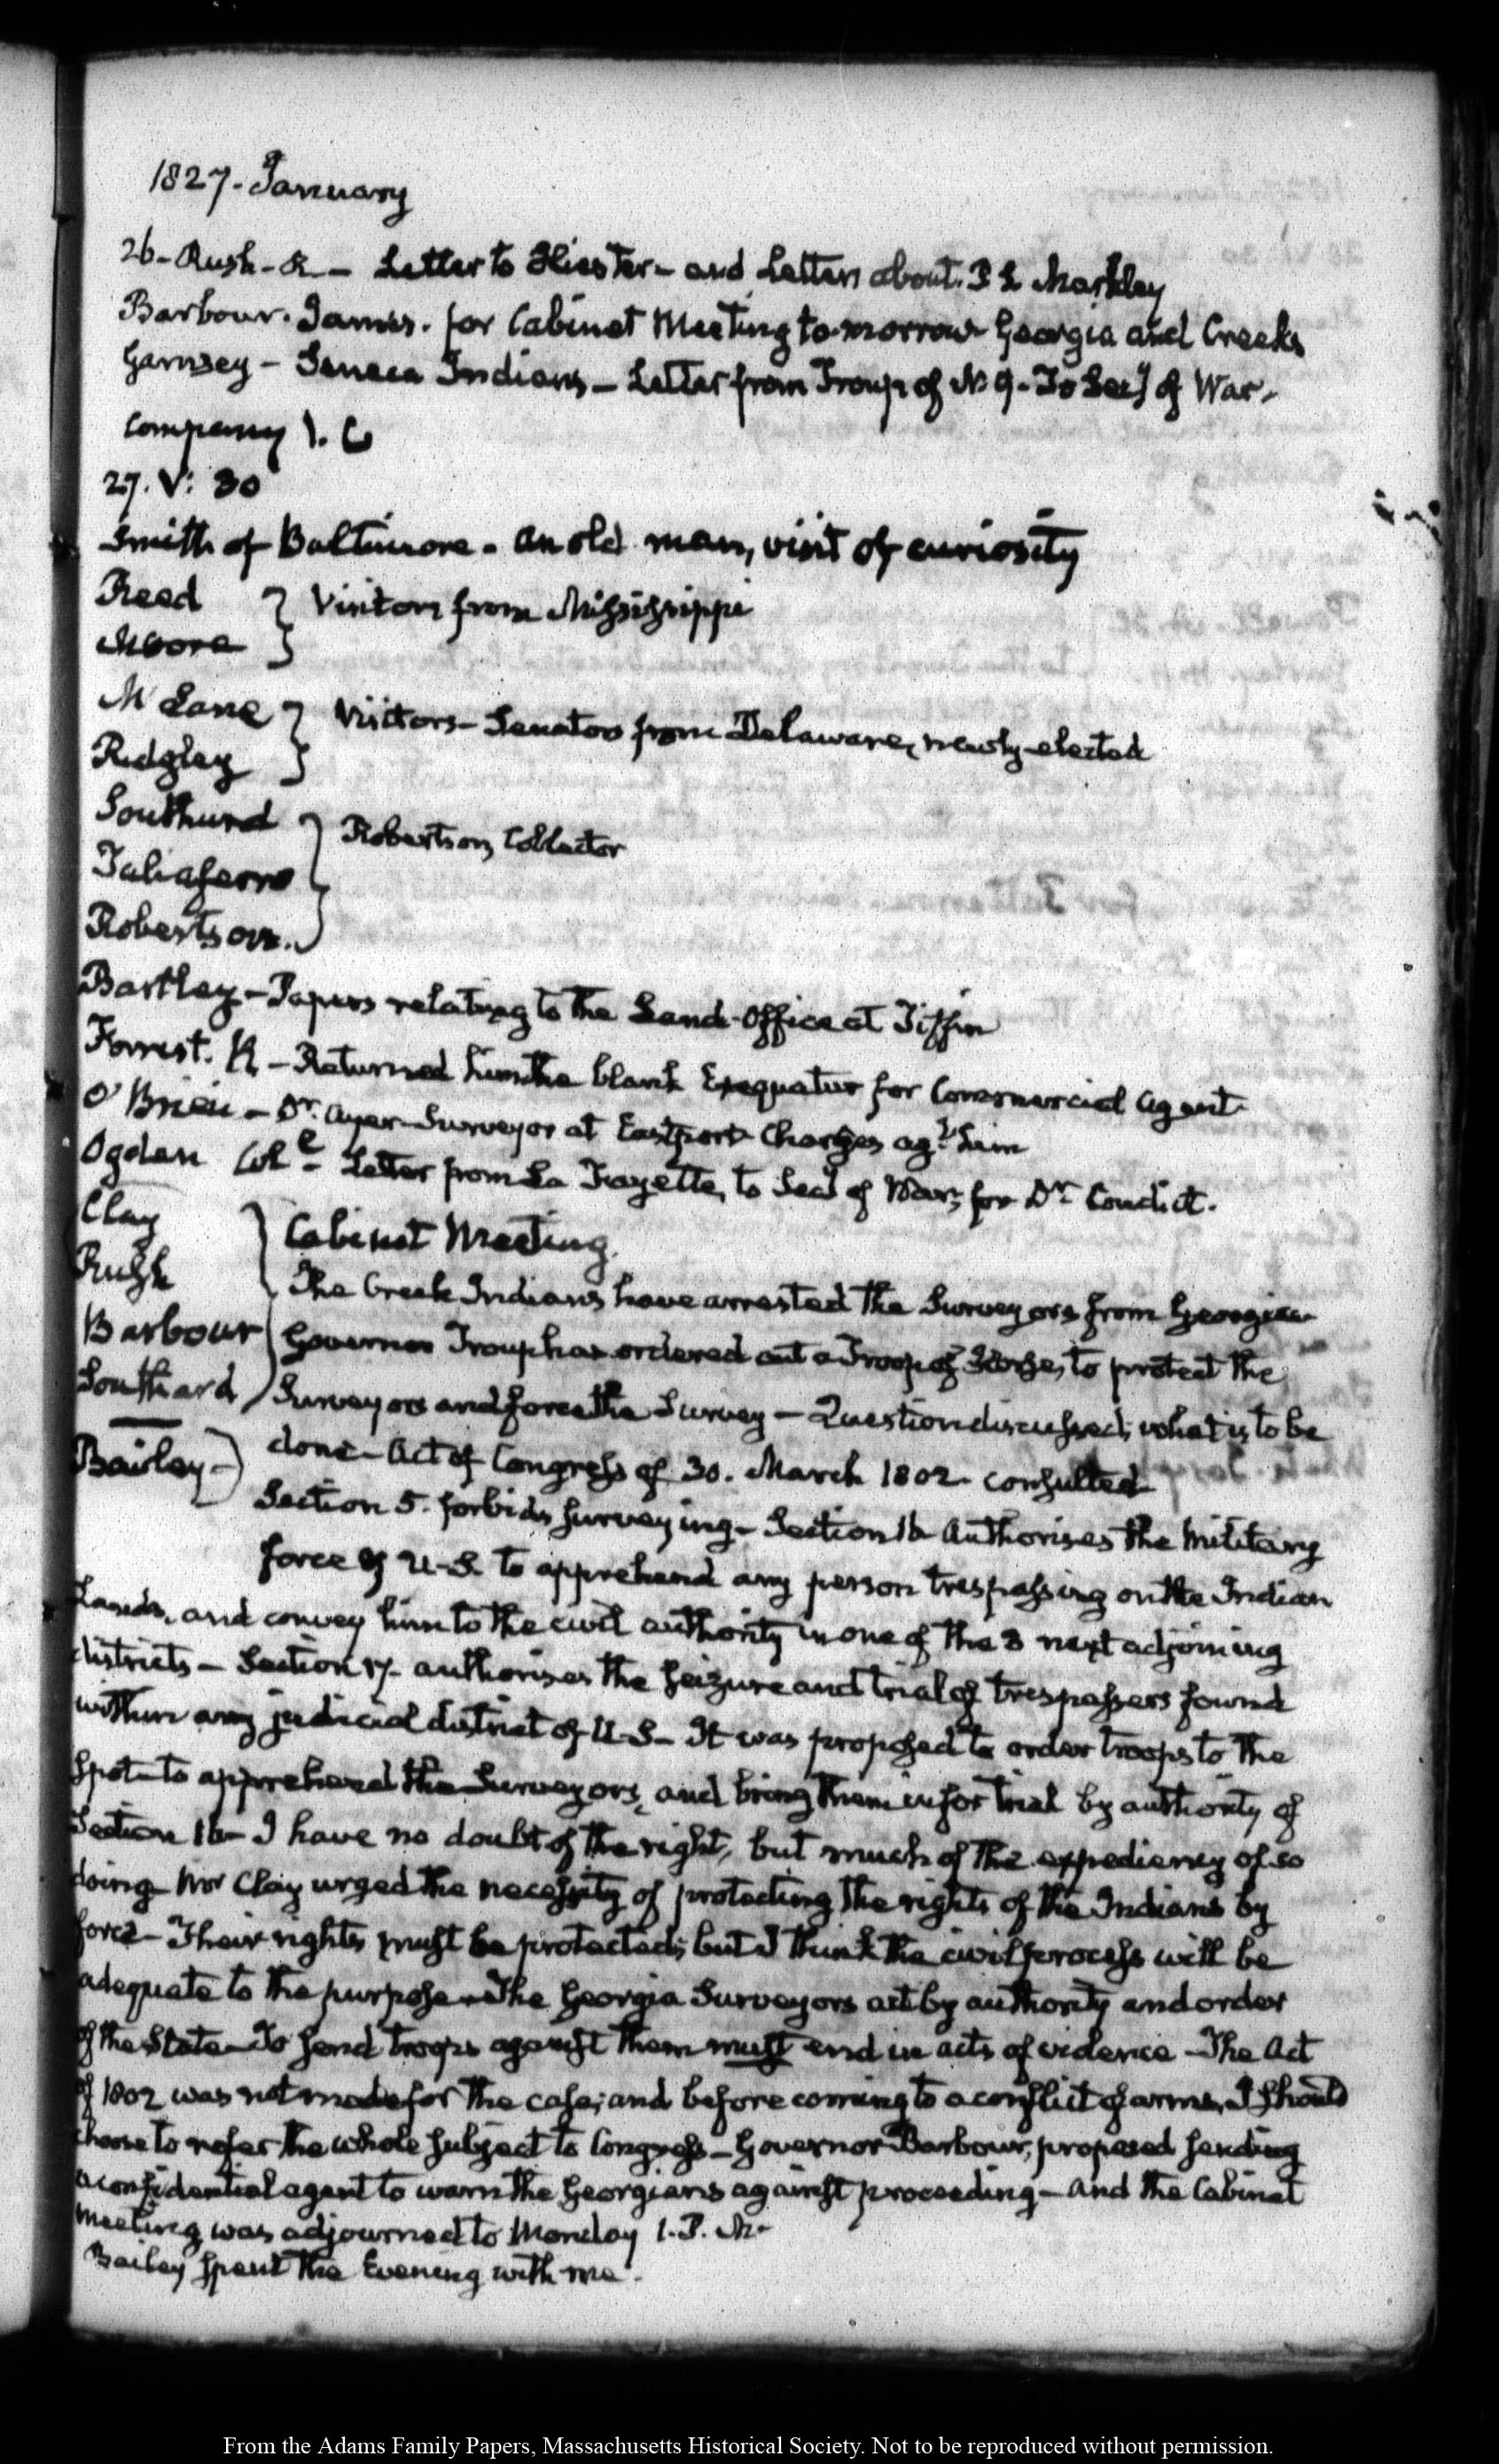 1827. January
26- Rush- R- Letter to Hiester- and Letters about P S Markley
Barbour. James. for Cabinet Meeting to-morrow Georgia and Creeks
Garnsey- Seneca Indians- Letter from Troup of N.Y- To Secy of War.
Company
27. V: 30
Smith of Baltimore- an old man, visit of curiosity
Reed } Visitors from Mississippi
Moore }
McLane } Visitors- Senators from Delaware, newly elected
Ridgley }
Southard } Robertson, Collector
Taliaferro
Robertson. }
Bartley- Papers relating to the Land-Office at Tiffin
Forrest. R- Returned him the blank Exequatur for Commercial Agent
O'Brien- Dr. Ayer- Surveyor at Eastport- Charges agt. him
Ogden Col- Letter from La Fayette, to Secy of War, for Dr. Condict.
Clay } Cabinet Meeting.
Rush The Creek Indians have arrested the Surveyors from Georgia
Barbour Governor Troup has ordered out a Troop of Horse, to protect the
Southard } Surveyors and force the Survey- Question discussed, what is to be
Bailey- } done- Act of Congress of 30. March 1802 consulted
Section 5. forbids surveying- Section 16 authorises the military
force of U-S. to apprehend any person trespassing on the Indian
Lands, and convey him to the civil authority in one of the 3 next adjoining
districts- Section 17- authorises the seizure and trial of trespassers found
within any judicial district of U-S- It was proposed to order troops to the
spot to apprehend the Surveyors, and bring them in for trial by authority of
Section 16- I have no doubt of the right, but much of the expediency of so
doing- Mr Clay urged the necessity of protecting the rights of the Indians by
force- Their rights must be protected; but I think the civil process will be
adequate to the purpose- The Georgia Surveyors act by authority and order
of the State- To send troops against them must end in acts of violence- The Act
of 1802 was not made for the case; and before coming to a conflict of arms, I should
choose to refer the whole subject to Congress- Governor Barbour, proposed sending
a confidential agent to warn the Georgians against proceeding- and the Cabinet
Meeting was adjourned to Monday 1. P. M.
Bailey spent the Evening with me.
From the Adams Family Papers, Massachusetts Historical Society. Not to be reproduced without permission.